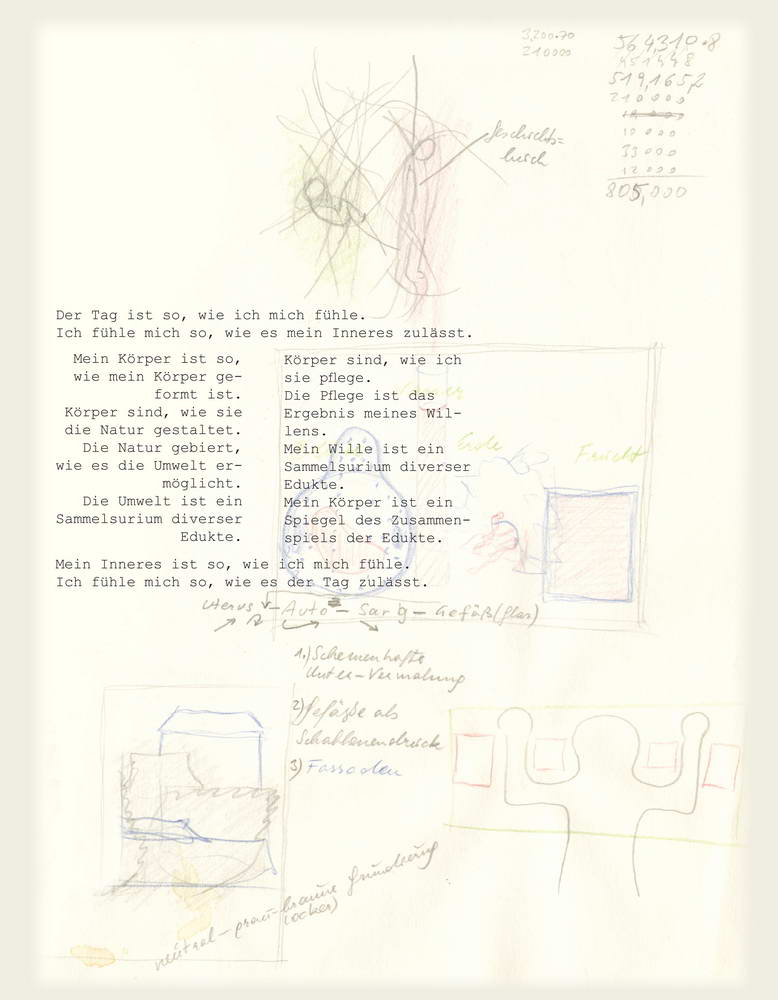 3,200.70
210000
564,310.8
451448
519,165,2
210000
10000
33000
12000
805,000
Geschichts=
Der Tag ist so, wie ich mich fühle.
Ich fühle mich so, wie es mein Inneres zulässt.
Mein Körper ist so,
wie mein Körper ge-
formt ist.
Körper sind, wie sie
die Natur gestaltet.
Die Natur gebiert,
wie es die Umwelt er-
möglicht.
Die Umwelt ist ein
Sammelsurium diverser
Edukte.
Körper sind, wie ich
sie pflege.
Die Pflege ist das
Ergebnis meines Wil-
lens.
Mein Wille ist ein
Sammelsurium diverser
Edukte.
Mein Körper ist ein
Spiegel des Zusammen-
spiels der Edukte.
Erde
Frucht
Mein Inneres ist so, wie ich mich fühle.
Ich fühle mich so, wie es der Tag zulässt.
Uterus - Auto - Sarg - Gefäß (Glas)
1.) Schemenhafte
Unter-Vermalung
2) Gefäße als
Schablonendruck
3) Fassaden
neutral - grau-braune Grundierung
(ocker)